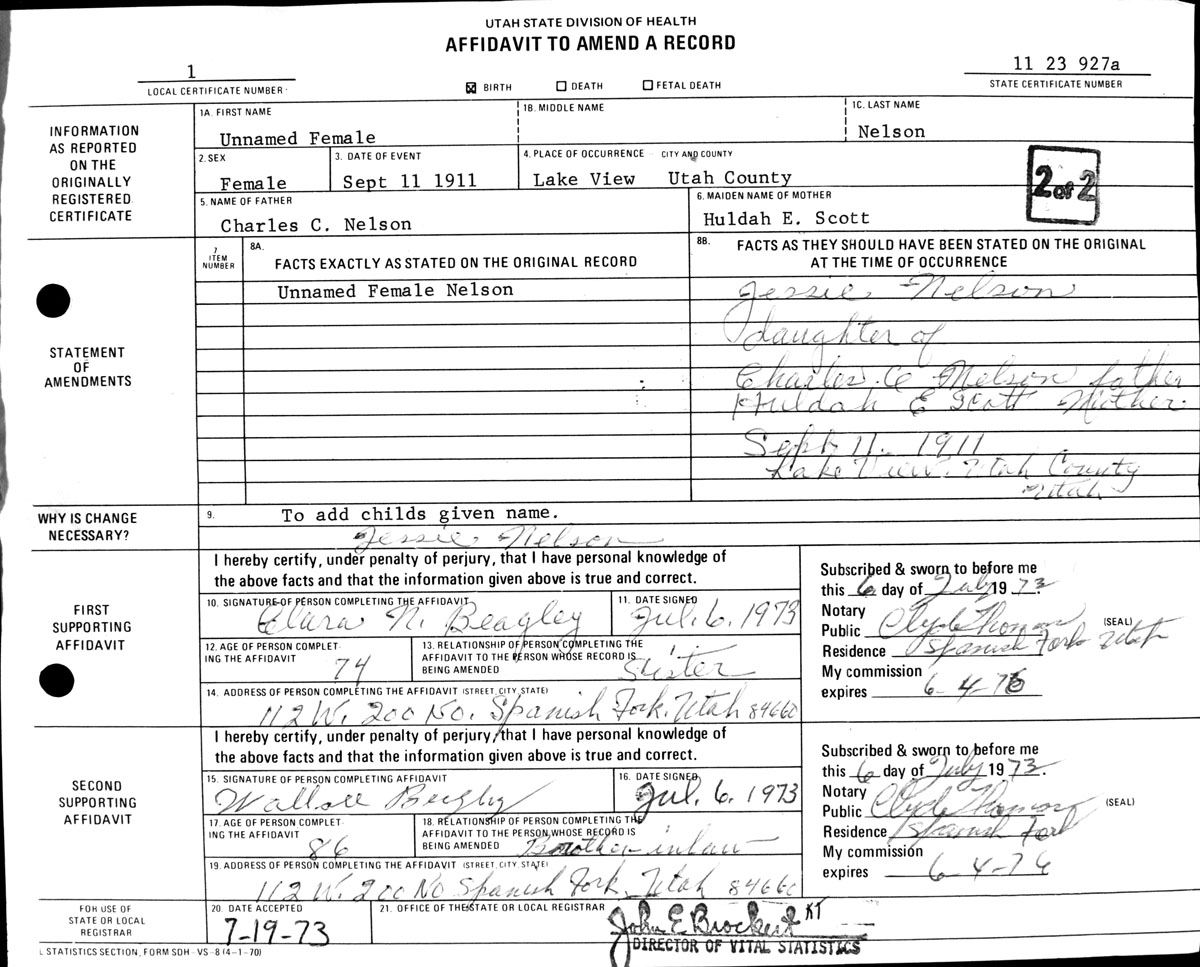 UTAH STATE DIVISION OF HEALTH
AFFIDAVIT TO AMEND A RECORD
1
LOCAL CERTIFICATE NUMBER
☒ BIRTH ☐ DEATH ☐ FETAL DEATH
11 23 927a
STATE CERTIFICATE NUMBER
INFORMATION AS REPORTED ON THE ORIGINALLY REGISTERED CERTIFICATE
1A. FIRST NAME 1B. MIDDLE NAME 1C. LAST NAME
Unnamed Female Nelson
2. SEX 3. DATE OF EVENT 4. PLACE OF OCCURRENCE — CITY AND COUNTY
Female Sept 11 1911 Lake View Utah County
2 of 2
5. NAME OF FATHER 6. MAIDEN NAME OF MOTHER
Charles C. Nelson Huldah E. Scott
STATEMENT OF AMENDMENTS
7 ITEM NUMBER
8A. FACTS EXACTLY AS STATED ON THE ORIGINAL RECORD
8B. FACTS AS THEY SHOULD HAVE BEEN STATED ON THE ORIGINAL
AT THE TIME OF OCCURRENCE
Unnamed Female Nelson
Jessie Nelson
daughter of
Charles C Nelson father
Huldah E Scott Mother.
Sept 11. 1911
Lake View. Utah County
Utah
WHY IS CHANGE NECESSARY?
9. To add childs given name.
Jessie Nelson
FIRST SUPPORTING AFFIDAVIT
I hereby certify, under penalty of perjury, that I have personal knowledge of
the above facts and that the information given above is true and correct.
10. SIGNATURE OF PERSON COMPLETING THE AFFIDAVIT 11. DATE SIGNED
Clara N. Beagley Jul. 6. 1973
12. AGE OF PERSON COMPLETING THE AFFIDAVIT
74
13. RELATIONSHIP OF PERSON COMPLETING THE AFFIDAVIT TO THE PERSON WHOSE RECORD IS BEING AMENDED
Sister
14. ADDRESS OF PERSON COMPLETING THE AFFIDAVIT (STREET, CITY, STATE)
112 W. 200 No. Spanish Fork. Utah 84660
Subscribed & sworn to before me
this 6 day of July 19 73.
Notary
Public Clyde Thomas (SEAL)
Residence Spanish Fork Utah
My commission
expires 6-4-76
SECOND SUPPORTING AFFIDAVIT
I hereby certify, under penalty of perjury, that I have personal knowledge of
the above facts and that the information given above is true and correct.
15. SIGNATURE OF PERSON COMPLETING AFFIDAVIT 16. DATE SIGNED
Wallace Beagley Jul. 6. 1973
17. AGE OF PERSON COMPLETING THE AFFIDAVIT
86
18. RELATIONSHIP OF PERSON COMPLETING THE AFFIDAVIT TO THE PERSON WHOSE RECORD IS BEING AMENDED
Brother-inlaw
19. ADDRESS OF PERSON COMPLETING THE AFFIDAVIT (STREET, CITY, STATE)
112 W. 200 No Spanish Fork. Utah 84660
Subscribed & sworn to before me
this 6 day of July 19 73.
Notary
Public Clyde Thomas (SEAL)
Residence Spanish Fork
My commission
expires 6-4-76
FOR USE OF STATE OR LOCAL REGISTRAR
20. DATE ACCEPTED 21. OFFICE OF THE STATE OR LOCAL REGISTRAR
7-19-73 John E Brockert KT
DIRECTOR OF VITAL STATISTICS
L STATISTICS SECTION, FORM SDH-VS-8 (4-1-70)